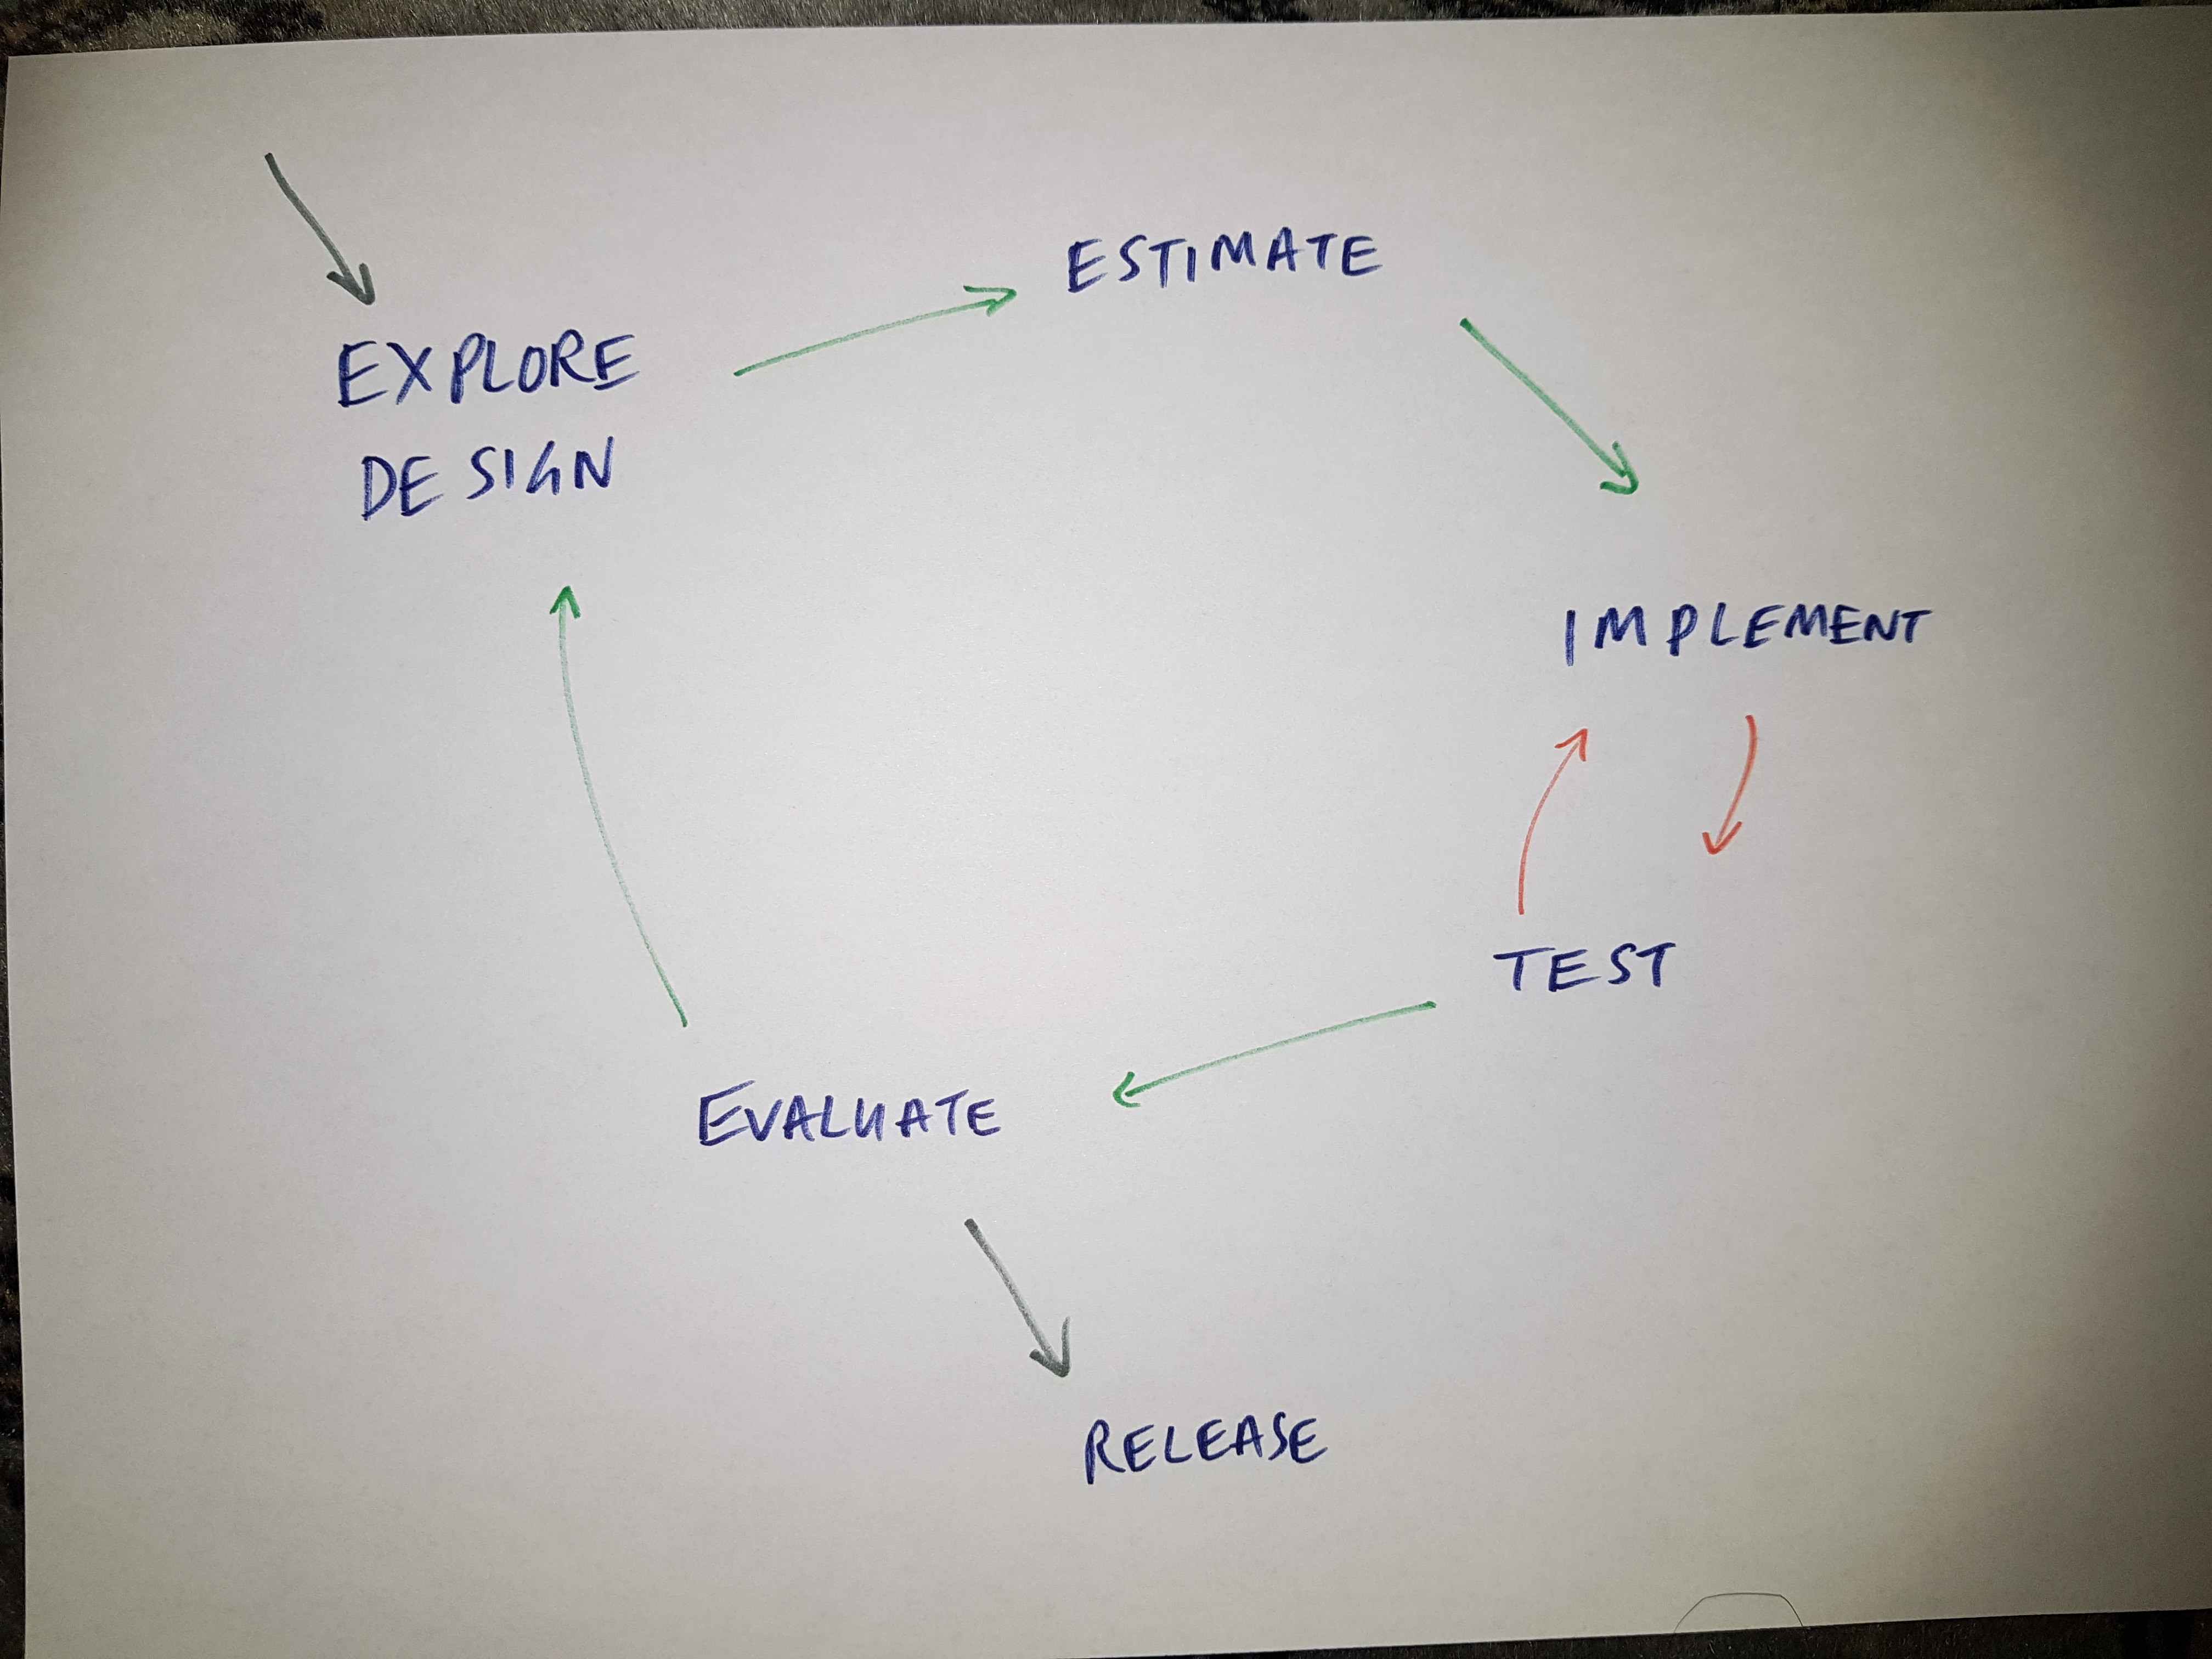 EXPLORE
DESIGN
ESTIMATE
IMPLEMENT
TEST
EVALUATE
RELEASE